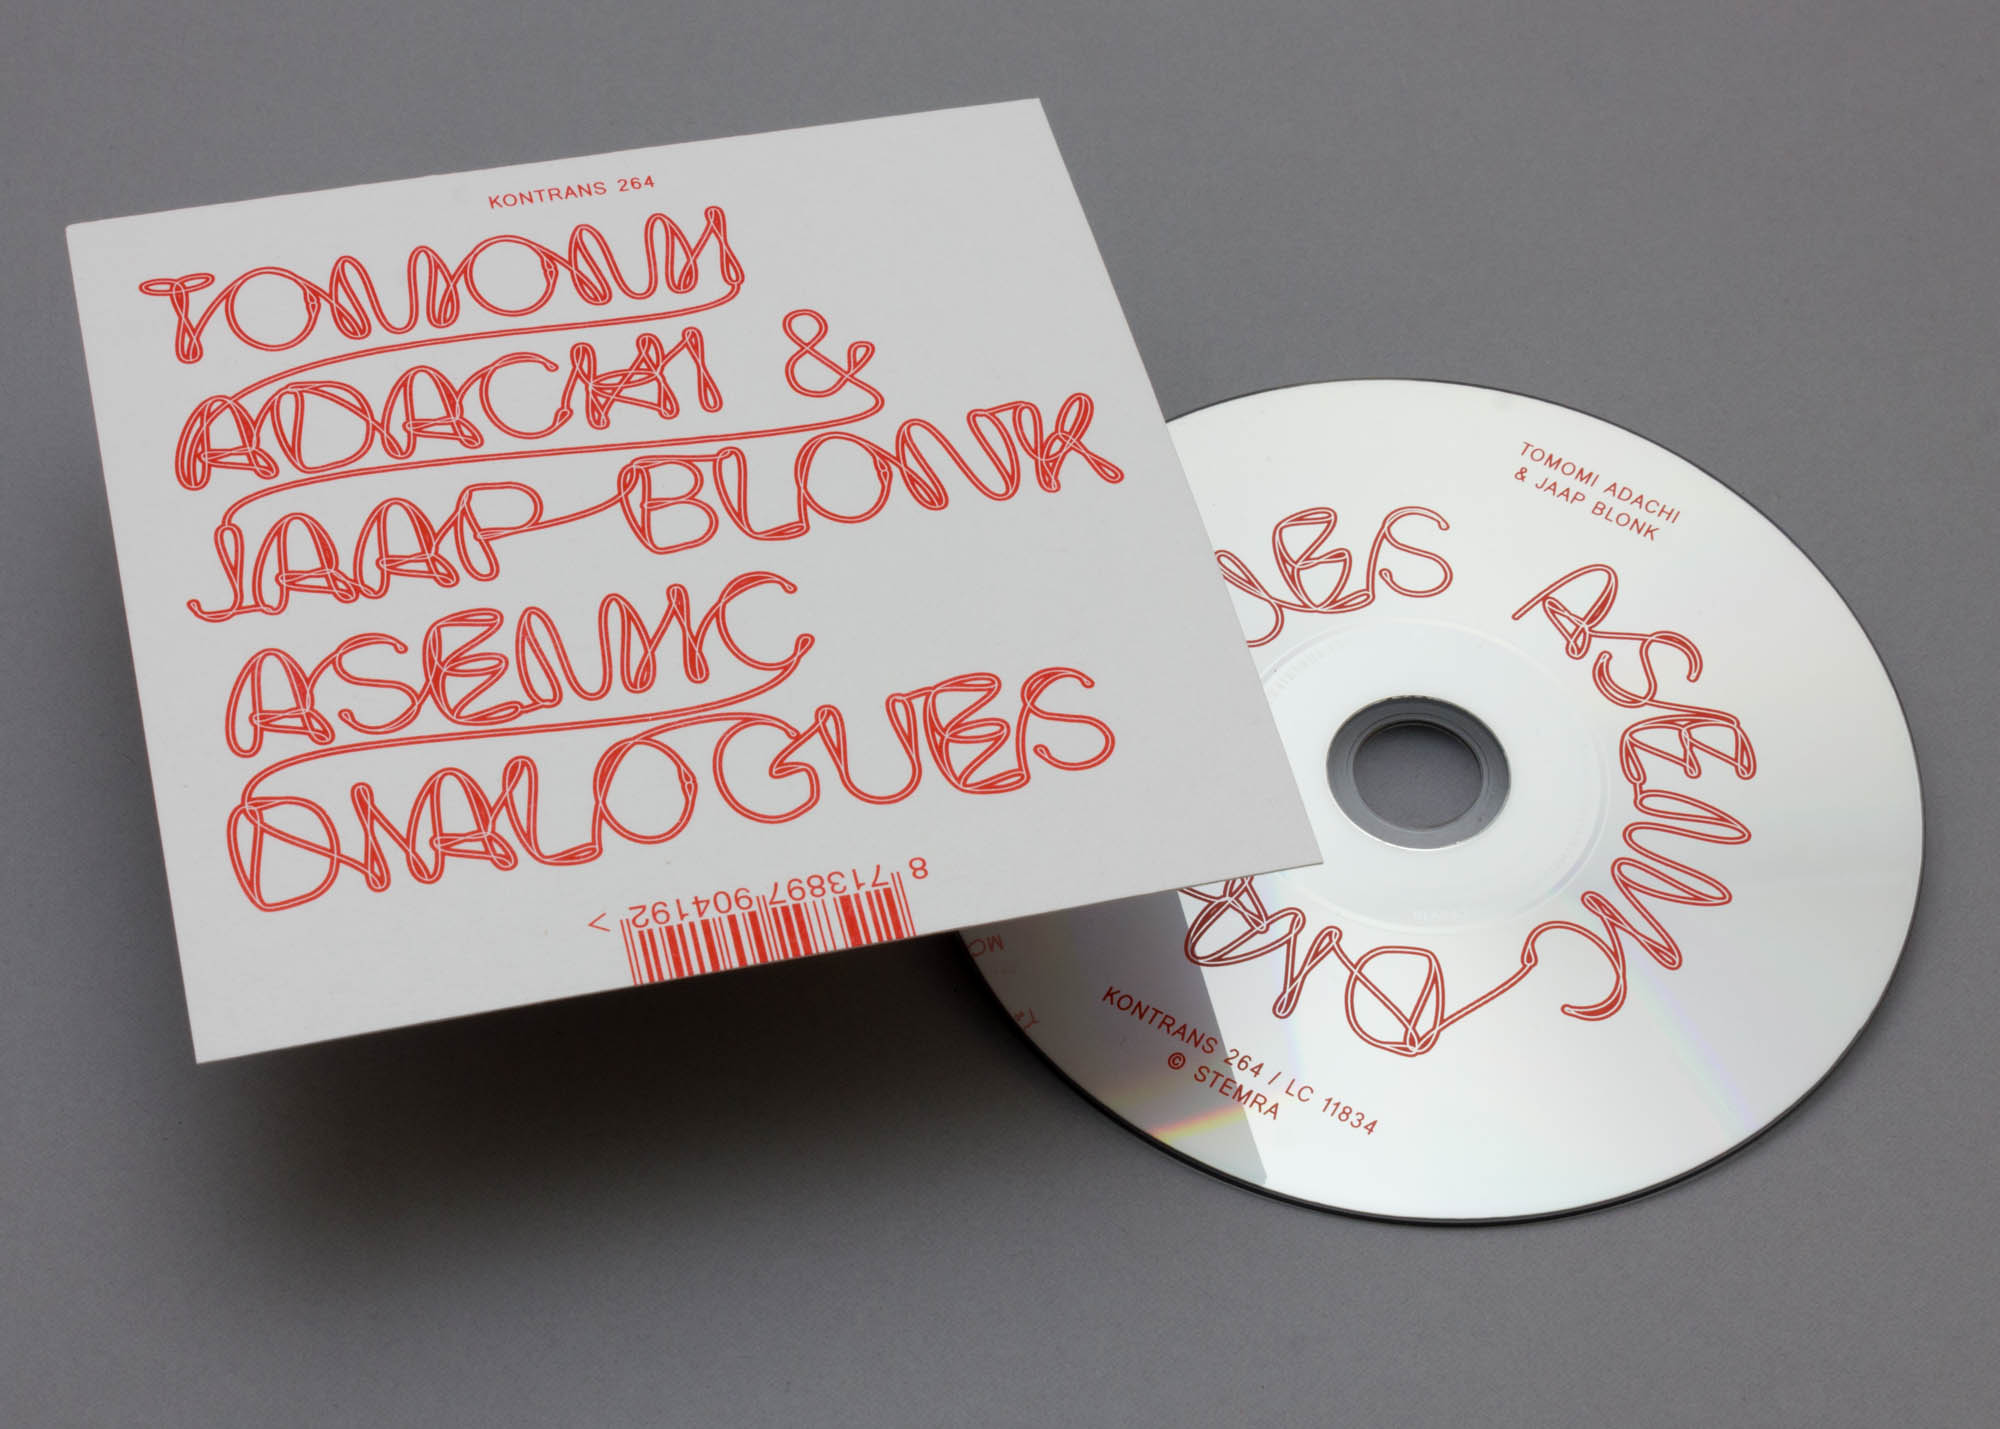 KONTRANS 264
TOMOMI
ADACHI &
JAAP BLONK
ASENIC
DIALOGUES
8 713897 904192 >
TOMOMI ADACHI
& JAAP BLONK
ASENIC
KONTRANS 264 / LC 11834
© STEMRA